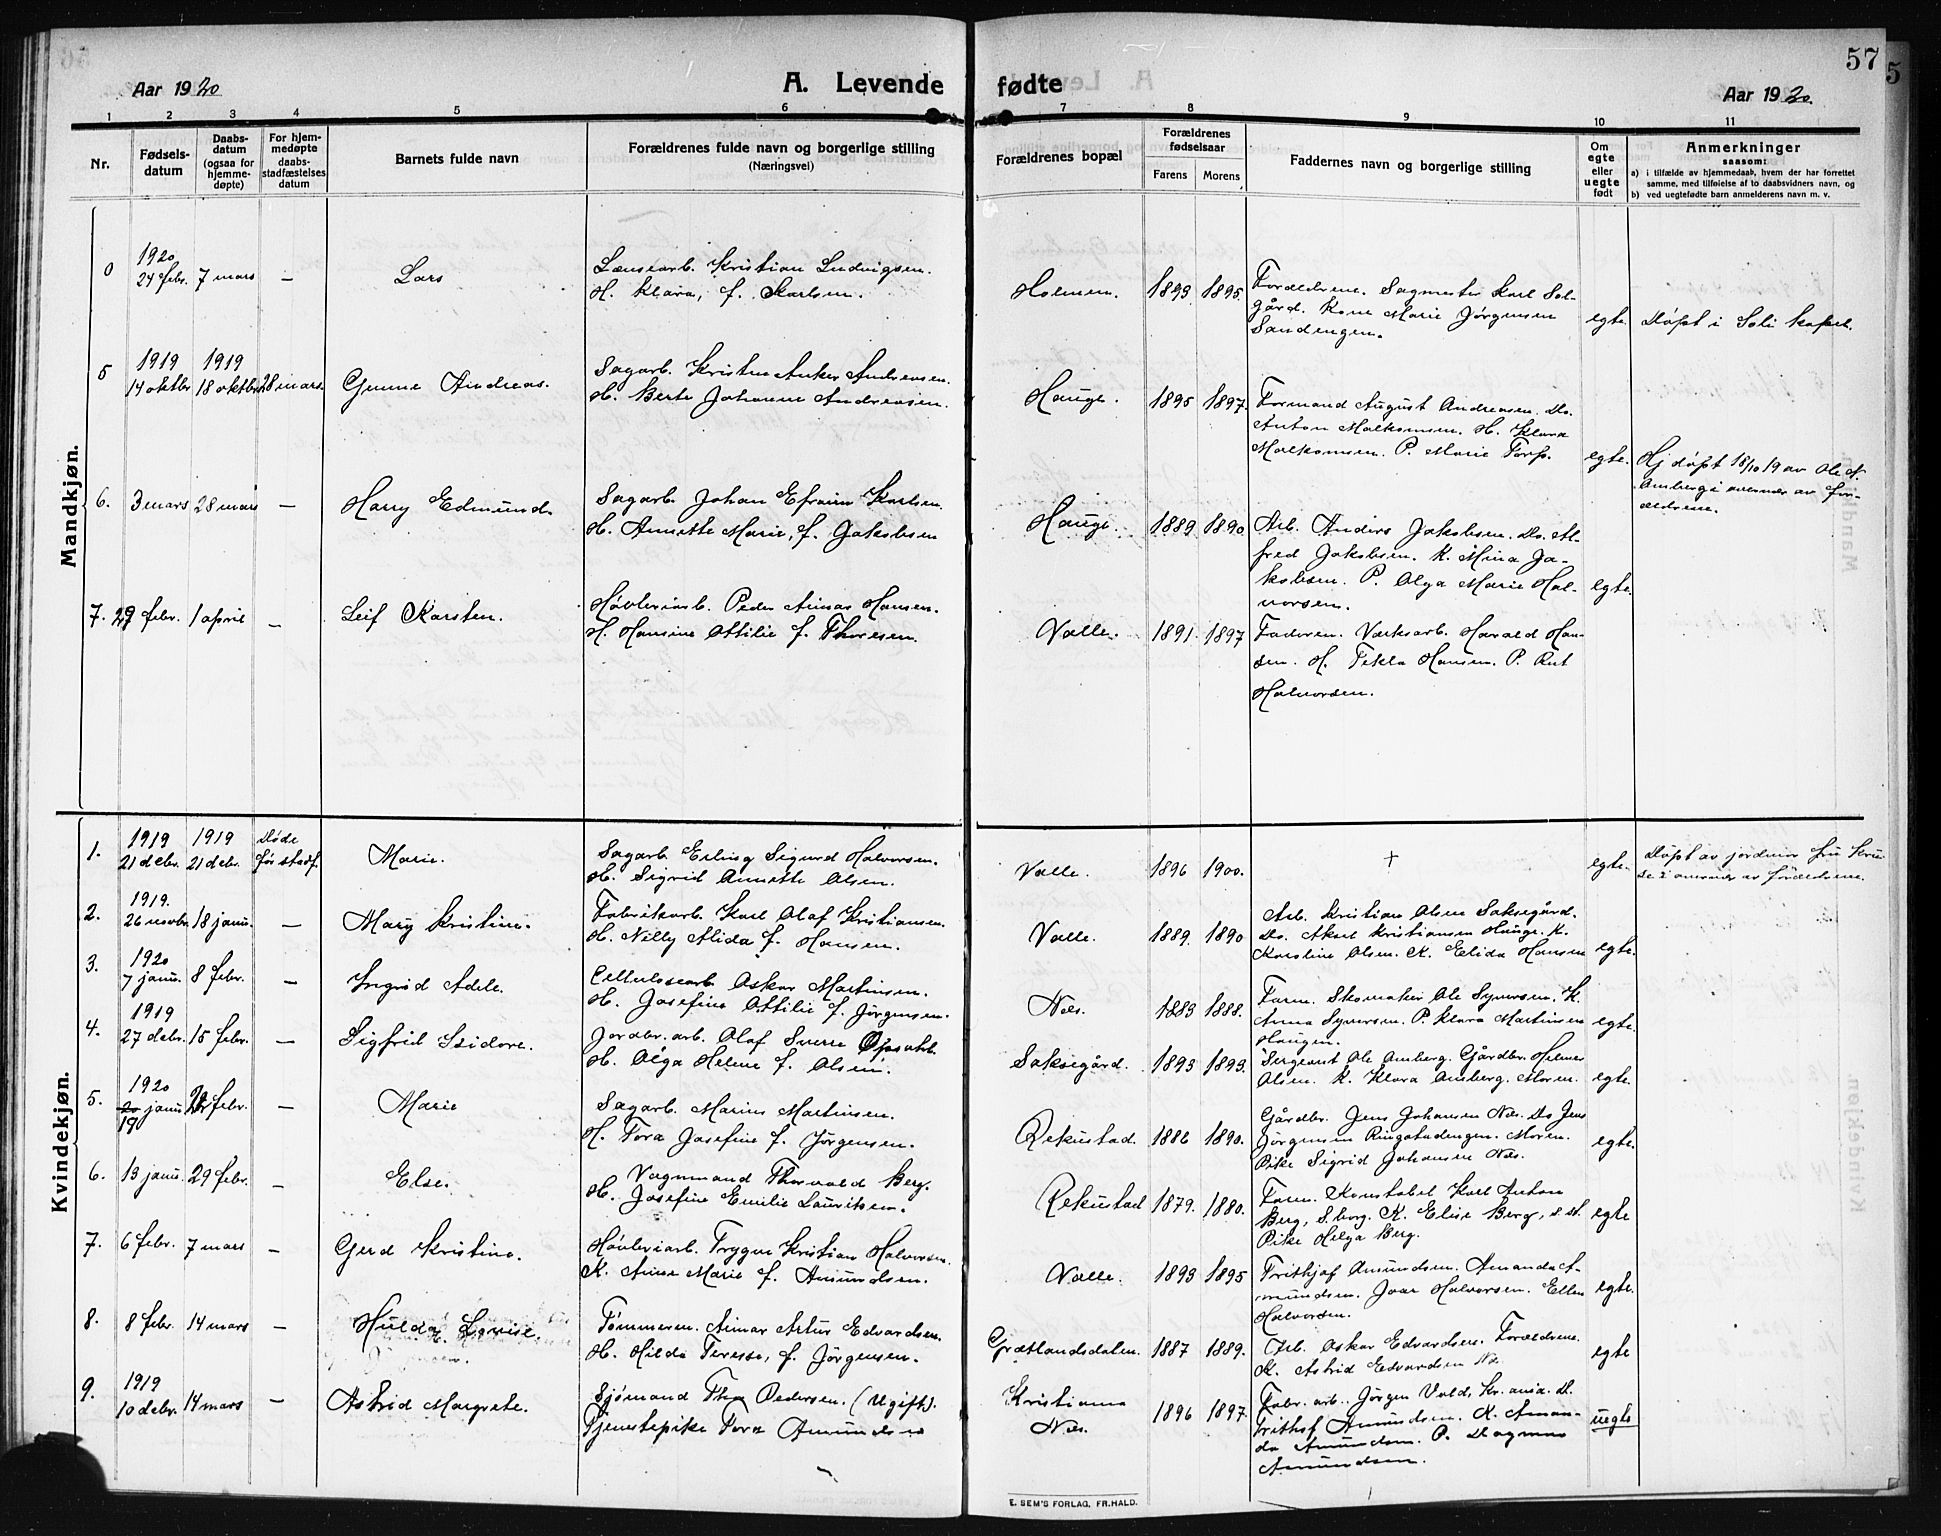 57
Aar 1920
A. Levende fødte
Aar 1920.
1 2 3 4 5 6 7 8 9 10 11
Nr.
Fødsels-
datum
Daabs-
datum
(ogsaa for
hjemme-
døpte)
For hjem-
medøpte
daabs-
stadfæstelses
datum
Barnets fulde navn
Forældrenes fulde navn og borgerlige stilling
(Næringsvei)
Forældrenes bopæl
Forældrenes
fødselsaar
Farens Morens
Faddernes navn og borgerlige stilling
Om
egte
eller
uegte
født
Anmerkninger
saasom:
a) i tilfælde av hjemmedaab, hvem der har forrettet
samme, med tilføielse af to daabsvidners navn, og
b) ved uegtefødte barn anmelderens navn m. v.
Mandkjøn.
1920
24 febr. 7 mars — Lars
Lænsearb. Kristian Ludvigsen.
H. Klara, f. Karlsen.
Holmen. 1893 1895.
Forældrene. Sagmester Karl Sol-
gård. Kone Marie Jørgensen
Sandengen.
egte. Døpt i Soli kapel.
5 1919 1919
14 oktbr 18 oktbr 28 mars. Gunne Andreas.
Sagarb. Kristen Anker Andreasen.
H. Berte Johanne Andreasen.
Hauge. 1895 1897.
Formand August Andreasen. Do.
Anton Malkomsen. H. Klara
Malkomsen. P. Marie Torp.
egte.
Hj døpt 18/10 19 av Ole N.
Amberg i nærvær av for-
ældrene.
6. 3 mars 28 mars — Harry Edmund.
Sagarb. Johan Efraim Karlsen.
H. Annette Marie, f. Jakobsen
Hauge. 1889 1890.
Arb. Anders Jakobsen. Do. Al-
fred Jakobsen. K. Mina Ja-
kobsen. P. Olga Marie Hal-
vorsen.
egte.
7. 29 febr. 1 april — Leif Karsten.
Høvleriarb. Peder Aimar Hansen.
H. Hansine Ottilie f. Thoresen.
Valle. 1891. 1897
Faderen. Værksarb. Harald Han-
sen. H. Tekla Hansen. P. Rut
Halvorsen.
Kvindekjøn.
1. 1919 1919 Døde
21 debr. 21 debr. før stadf. Marie.
Sagarb. Erling Sigurd Halvorsen.
H. Sigrid Annette Olsen.
Valle. 1896 1900. + egte.
Døpt av jordmor fru Kru-
se i nærvær av forældrene.
2. 1919.
26 novbr. 18 janu. — Mary Kristine.
Fabrikarb. Karl Olaf Kristiansen.
H. Nelly Alida f. Hansen.
Valle. 1889. 1890
Arb. Kristian Olsen Saksegård.
Do. Aksel Kristiansen Hauge. K.
Karoline Olsen. K. Elida Hansen
egte.
3. 1920
7 janu. 8 febr. — Ingrid Adele.
Cellulosearb. Oskar Martinsen.
H. Josefine Ottilie f. Jørgensen.
Næs. 1883 1888.
Farm. Skomaker Ole Syversen. K.
Anna Syversen. P. Klara Martinsen
Haugen.
egte.
4. 1919
27 debr. 15 febr. — Sigfrid Isidore.
Jordbr. arb. Olaf Sverre Opsahl.
H. Olga Helene f. Olsen.
Saksegård. 1893 1893.
Sergeant Ole Amberg. Gårdbr. Helmer
Olsen. K. Klara Amberg. Moren.
egte.
5. 1920
19 janu febr. — Marie
Sagarb. Marius Martinsen.
H. Tora Josefine f. Jørgensen.
Rekustad. 1886 1890.
Gårdbr. Jens Johansen Næs. Do Jens
Jørgensen Ringstadengen. Moren.
Pike Sigrid Johansen Næs.
egte.
6. 13 janu. 29 febr. — Else.
Vognmand Thorvald Berg.
H. Josefine Emilie Lauritsen.
Rekustad 1879. 1880.
Farm. Konstabel Karl Anton
Berg, S.borg. K. Elise Berg, s. st.
Pike Helga Berg.
egte
7. 6 febr. 7 mars — Gerd Kristine.
Høvleriarb. Trygve Kristian Halvorsen.
K. Anne Marie f. Amundsen.
Valle. 1893 1895
Frithjof Amundsen. Amanda A-
mundsen. Ivar Halvorsen. Ellen
Halvorsen.
egte.
8. 8 febr. 14 mars — Hulda Lovise.
Tømmerm. Aimar Artur Edvardsen.
H. Hilda Teresse, f. Jørgensen.
Grætlandsdalen. 1887 1889.
Arb. Oskar Edvardsen. Forældrene.
K. Astrid Edvardsen Næs
egte
9. 1919
10 debr. 14 mars — Astrid Margrete.
Sjømand Thor Pedersen. (Ugift).
Tjenestepike Tora Amundsen
Kristiania
Næs.
1896 1897.
Fabr. arb. Jørgen Vold, Kr.ania. Do.
Frithof Amundsen. K. Aman-
da Amundsen. P. Dagmar
Amundsen.
uegte
E. SEM'S FORLAG, FR.HALD.